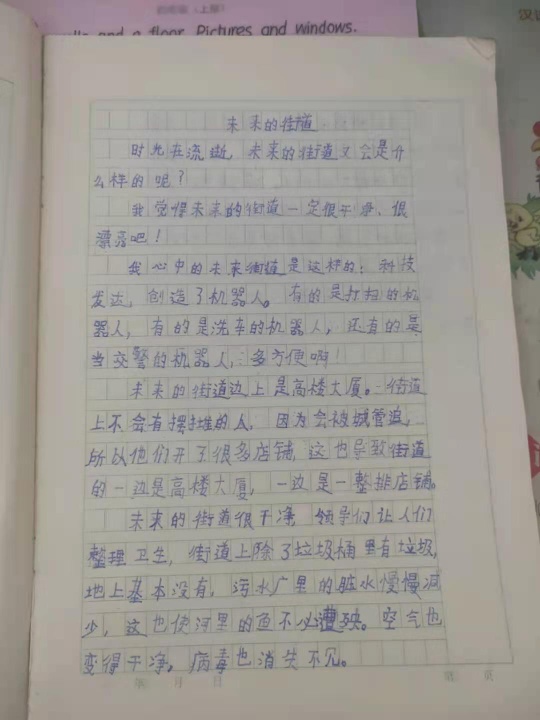 and a floor. Pictures and windows.
汉语
未来的街道
时光在流逝,未来的街道又会是什
么样的呢?
我觉得未来的街道一定很干净、很
漂亮吧!
我心中的未来街道是这样的:科技
发达,创造了机器人。有的是打扫的机
器人,有的是洗车的机器人,还有的是
当交警的机器人,多方便啊!
未来的街道边上是高楼大厦。街道
上不会有摆摊的人,因为会被城管追,
所以他们开了很多店铺,这也导致街道
的一边是高楼大厦,一边是一整排店铺。
未来的街道很干净,领导们让人们
整理卫生,街道上除了垃圾桶里有垃圾,
地上基本没有,污水厂里的脏水慢慢减
少,这也使河里的鱼不必遭殃。空气也
变得干净。病毒也消失不见。
年 月 日
第 页